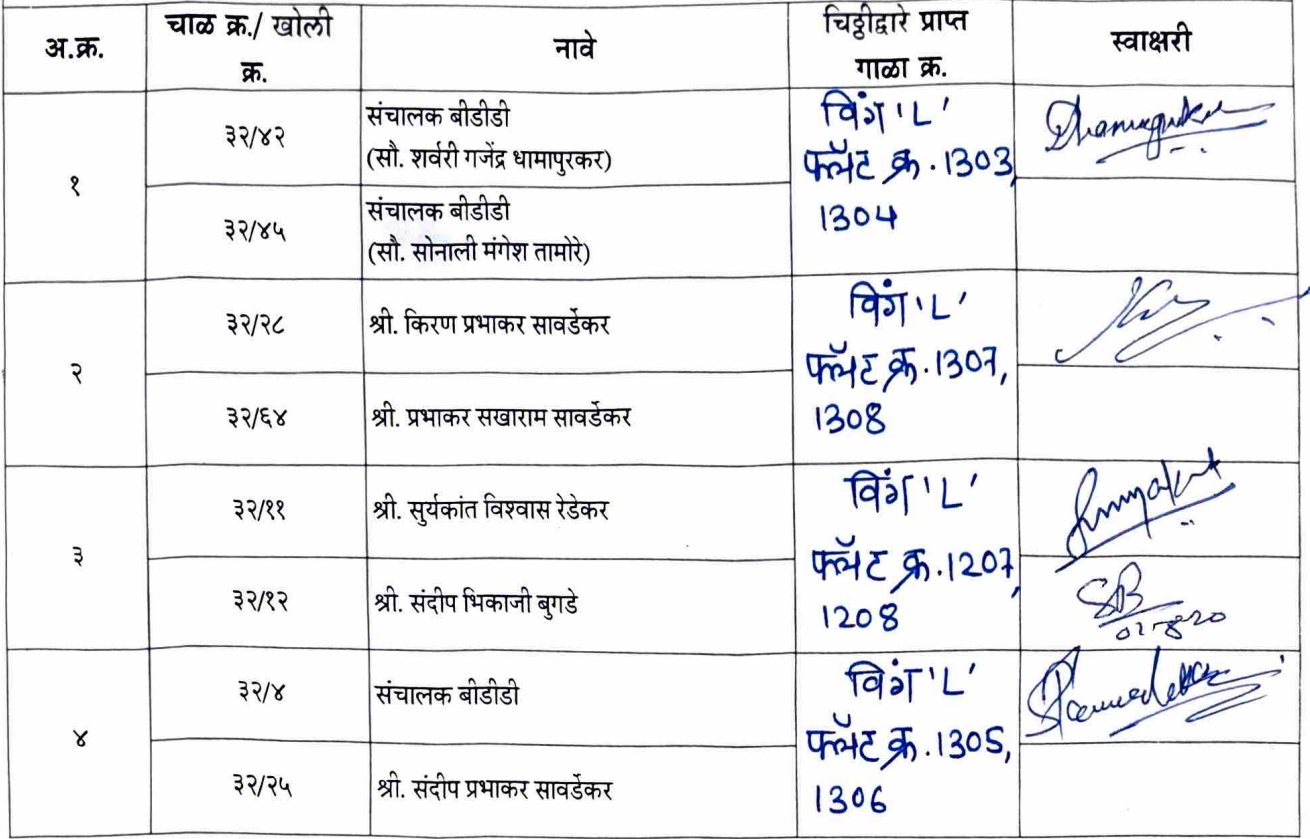 अ.क्र.
चाळ क्र./ खोली
क्र.
नावे
चिठ्ठीद्वारे प्राप्त
गाळा क्र.
स्वाक्षरी
१
३२/४२
संचालक बीडीडी
(सौ. शर्वरी गजेंद्र धामापुरकर)
विंग 'L'
फ्लॅट क्र. 1303,
1304
३२/४५
संचालक बीडीडी
(सौ. सोनाली मंगेश तामोरे)
२
३२/२८
श्री. किरण प्रभाकर सावर्डेकर
विंग 'L'
फ्लॅट क्र. 1307,
1308
३२/६४
श्री. प्रभाकर सखाराम सावर्डेकर
३
३२/११
श्री. सुर्यकांत विश्वास रेडेकर
विंग 'L'
फ्लॅट क्र. 1207,
1208
३२/१२
श्री. संदीप भिकाजी बुगडे
SB
४
३२/४
संचालक बीडीडी
विंग 'L'
फ्लॅट क्र. 1305,
1306
३२/२५
श्री. संदीप प्रभाकर सावर्डेकर